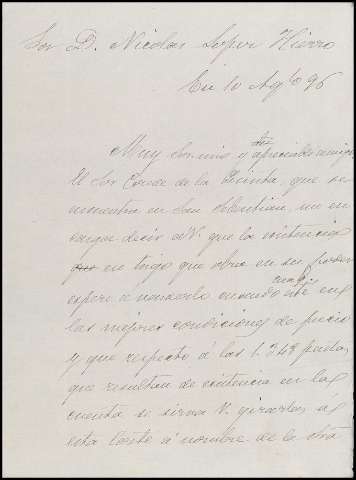 Sor D. Nicolas Lopez Hierro
En 10 Agto 96
Muy Sor. mio y apreciado amigo
El Sor Conde de la Quinta, que se
encuentra en San Sebastian, me en
carga decir a V. que la existencia
en trigo que obra en su poder
espere a venderlo cuando este en
las mejores condiciones de precio
y que respecto á las 1.348 pesetas
que resultan de existencia en la
cuenta se sirva V. girarlas á
esta Corte á nombre de la